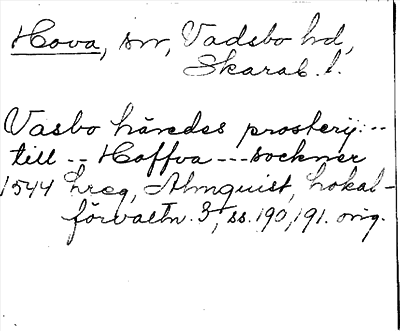 Hova, sn, Vadsbo hd,
Skarab. l.
Vasbo häredes prostery...
till -- Hoffva --- sockner
1544 hreg, Almquist, Lokal-
förvaltn. 3, ss. 190, 191. orig.